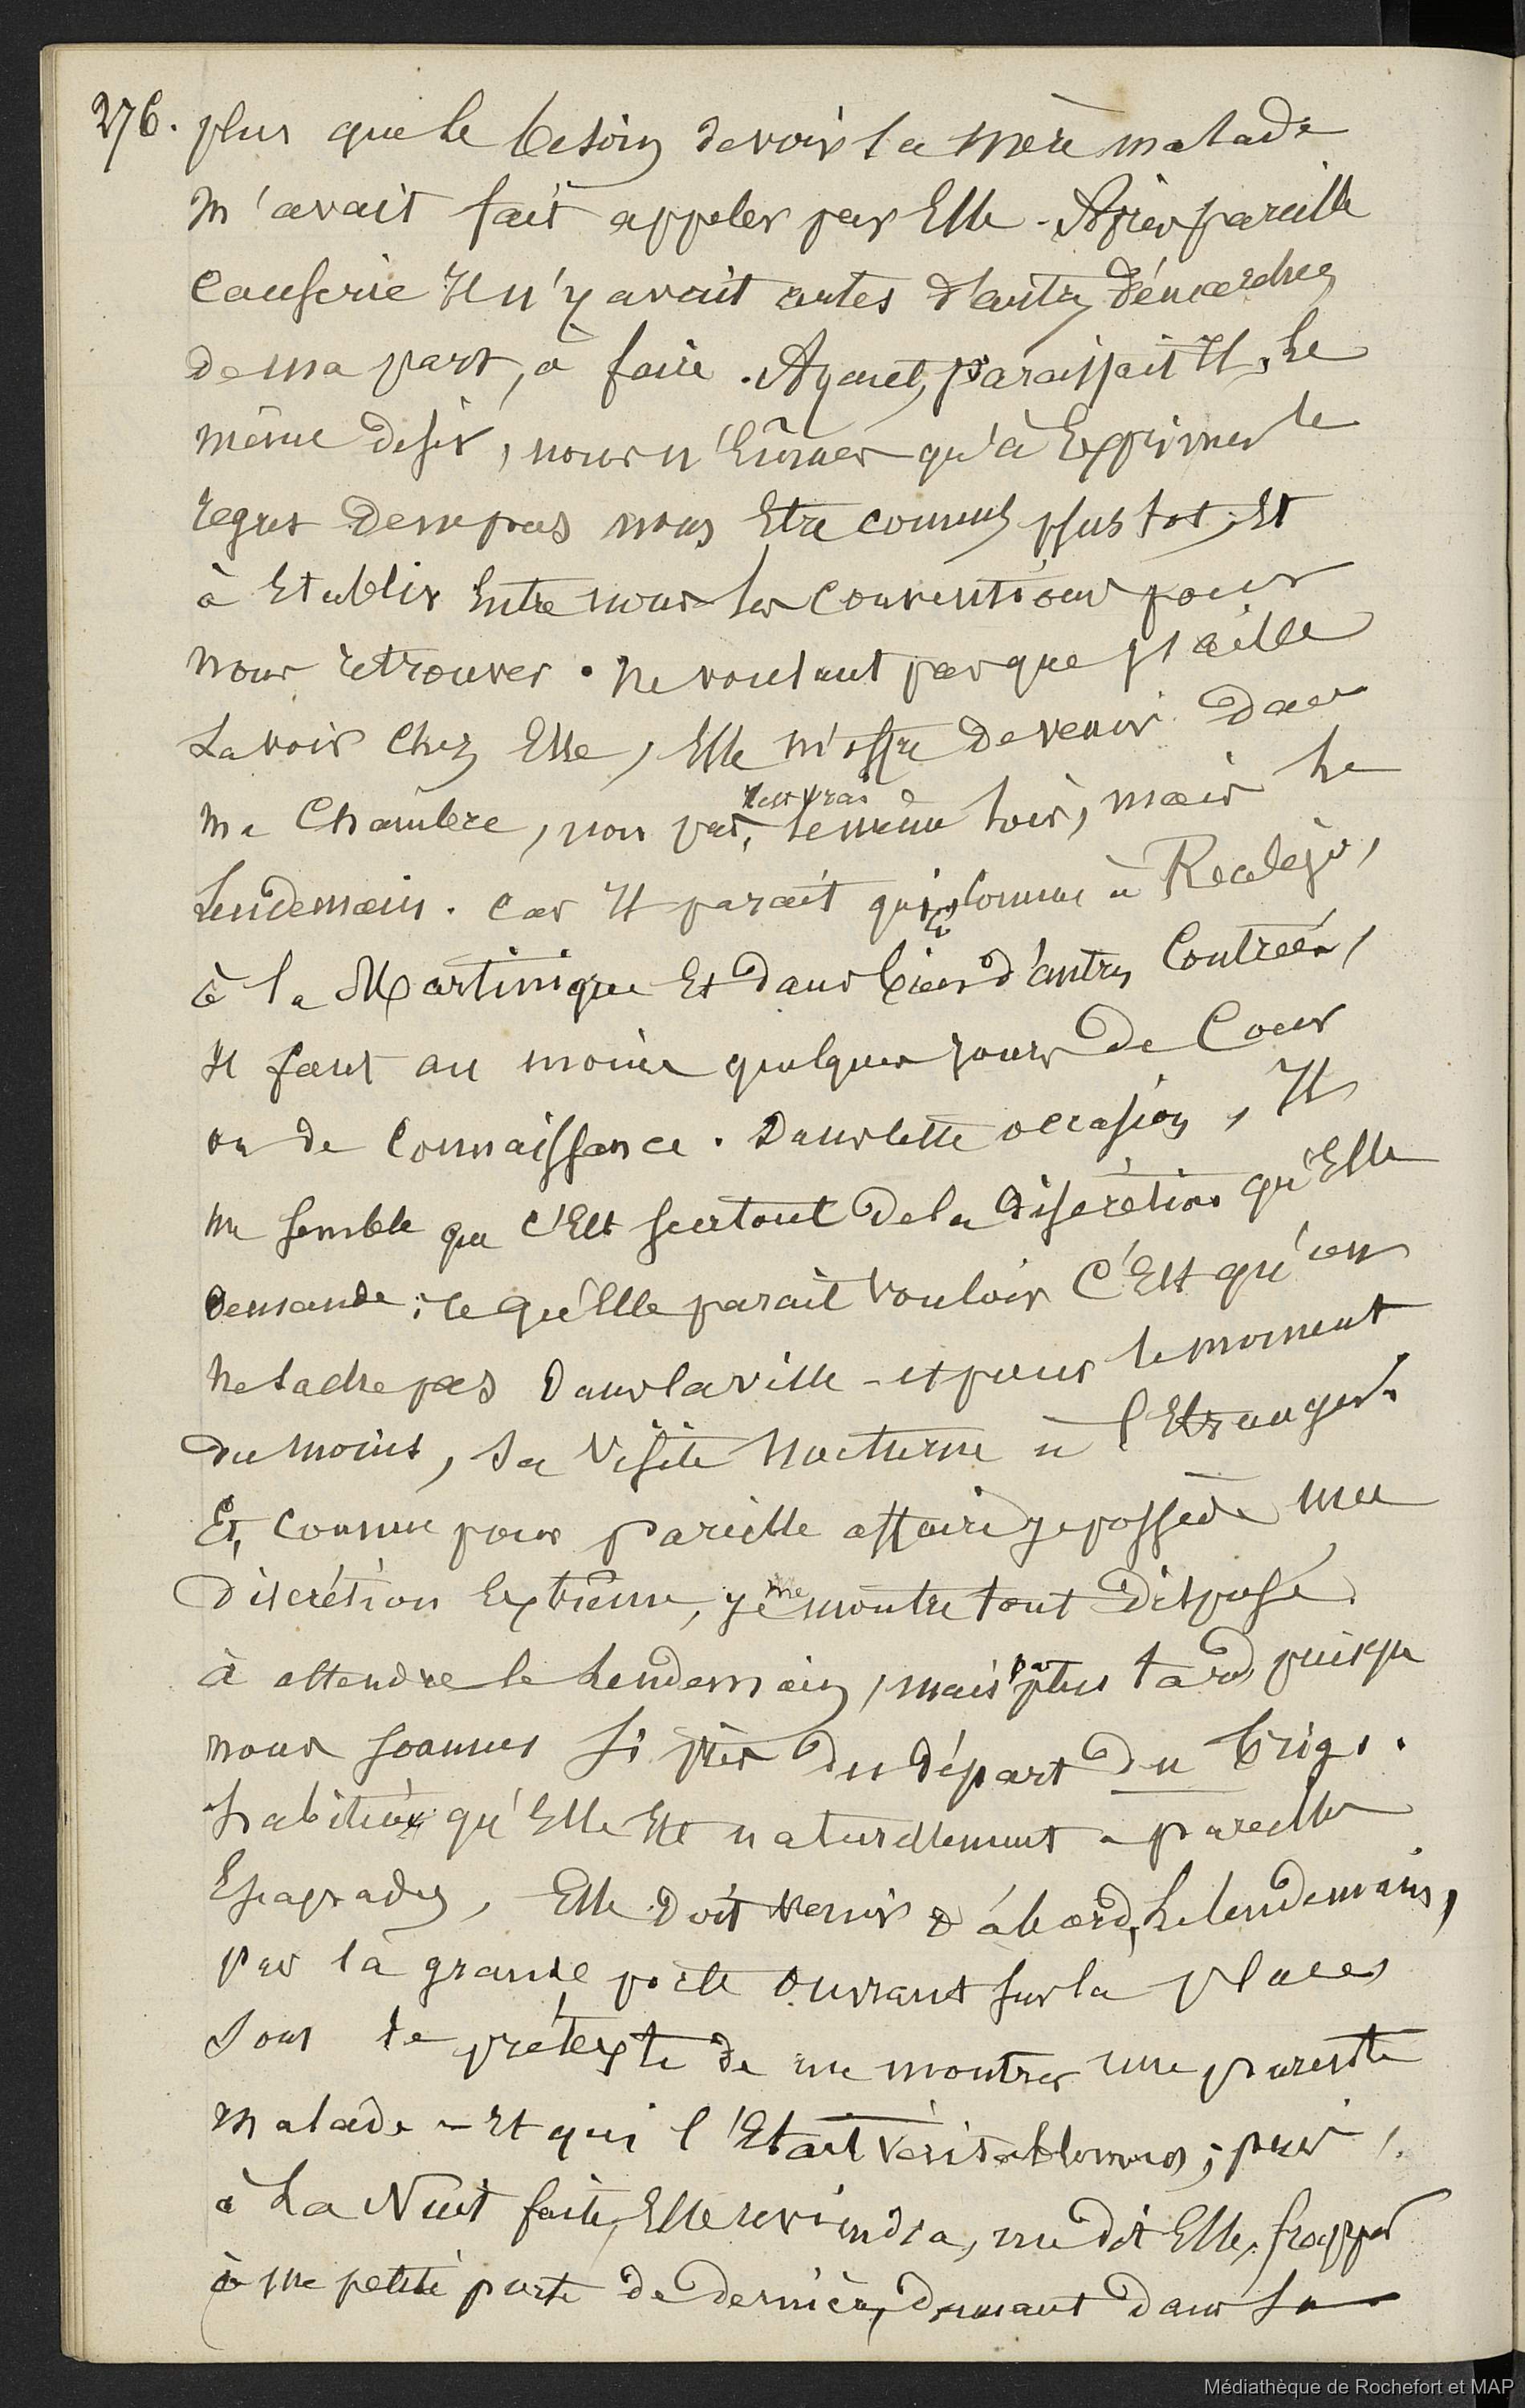 276. plus que le besoin de voir sa mère malade
m'avait fait appeler par Elle - Après pareille
Causerie Il n'y avait certes d'autre démarche
de ma part, à faire. Ayant, paraissait Il, le
même désir, nous n'Eûmes qu'à Exprimer le
regret de ne pas nous Etre connus plus tot, Et
à Etablir Entre nous les conventions pour
nous retrouver. Ne voulant pas que j'aille
La voir Chez Elle, Elle m'offre de venir dans
ma Chambre, non pas, Il est vrai le même soir, mais le
Lendemain. Car Il parait qu'ici, Comme à Realejo,
à la Martinique Et dans bien d'autres Contrées,
Il faut au moins quelques jours de Cour
ou de Connaissance. Dans cette occasion, Il
me semble que C'Est surtout de la discrétion qu'Elle
demande; ce qu'Elle parait vouloir C'Est qu'on
ne sache pas dans la ville - et pour le moment
du moins, sa visite nocturne à l'Etranger.
Et, comme pour pareille affaire je possède une
discrétion Extrême, je me montre tout disposé
à attendre le Lendemain, mais pas plus tard puisque
nous sommes si près du départ du brig.
habituée qu'Elle Est naturellement à pareilles
Escapades, Elle doit venir d'abord, Le lendemain,
par la grande porte ouvrant sur la place
sous le prétexte de me montrer une parente
malade - Et qui l'Etait véritablement; puis,
à La Nuit faite, Elle reviendra, me dit Elle, frapper
à ma petite porte de derrière, donnant dans sa